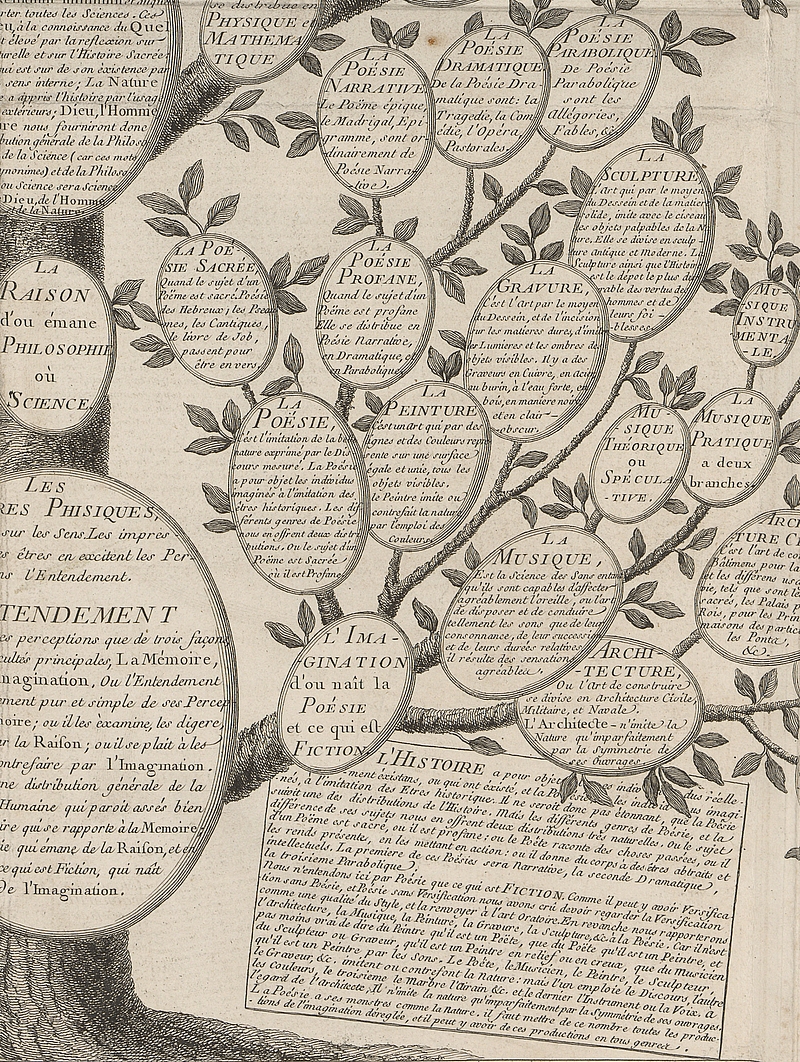 rter toutes les Sciences. Ces
eu, à la connoissance du Quel
t élevé par la reflexion sur
turelle et sur l'Histoire Sacrée
ui est sur de son éxistence par
sens interne; La Nature
e a appris l'histoire par l'usage
extérieurs; Dieu, l'Homme
re nous fourniront donc
bution générale de la Philoso
de la Science (car ces mots
ynonimes) et de la Philoso
ou Science sera Science
Dieu, de l'Homme
et de la Nature
se distribue en
PHYSIQUE et
MATHEMA
TIQUE
LA
POÉSIE
NARRATIVE
Le Poëme épique,
le Madrigal, Epi-
gramme, sont or
dinairement de
Poësie Narra-
tive).
LA
POÉSIE
DRAMATIQUE
De la Poésie Dra-
matique sont: la
Tragedie, la Com
édie, l'Opéra,
Pastorales.
LA
POÉSIE
PARABOLIQUE.
De Poésie
Parabolique
sont les
Allégories,
Fables, &c.
LA
SCULPTURE,
l'art qui par le moyen
du Dessein et de la matiere
solide, imite avec le ciseau
les objets palpables de la Na
ture. Elle se divise en sculp-
ture antique et Moderne. La
Sculpture ainsi que l'Histoire
est le dépot le plus du
rable des vertus des
hommes et de
leurs foi-
blesses
LA
RAISON
d'ou émane
PHILOSOPHIE
où
SCIENCE.
LA POË
SIE SACRÉE,
Quand le sujet d'un
Poëme est sacré. Poésie
des Hebreux; les Pseau
mes, les Cantiques,
le livre de Job,
passent pour
être en vers.
LA
POÉSIE
PROFANE,
Quand le sujet d'un
Poëme est profane
Elle se distribue en
Poésie Narrative,
en Dramatique, et
en Parabolique.
LA
GRAVURE,
C'est l'art par le moyen
du Dessein, et de l'incision
sur les matieres dures, d'imiter
les Lumieres et les ombres des
objets visibles. Il y a des
Graveurs en Cuivre, en Acier
au burin, à l'eau forte, en
bois, en maniere noire
et en clair-
obscur.
MU-
SIQUE
INSTRU
MENTA-
LE.
LA
POÉSIE,
C'est l'imitation de la belle
nature exprimé par le Dis
cours mesuré. La Poésie
a pour objet les individus
imaginés à l'imitation des
êtres historiques. Les dif
férents genres de Poésie
nous en offrent deux distri
butions. Ou le sujet d'un
Poëme est Sacrée
où il est Profane
LA
PEINTURE
C'est un art qui par des
lignes et des Couleurs repré
sente sur une surface
égale et unie, tous les
objets visibles.
le Peintre imite ou
contrefait la nature
par l'emploi des
Couleurs
MU-
SIQUE
THÉORIQUE
ou
SPÉCULA
-TIVE.
LA
MUSIQUE
PRATIQUE
a deux
branches.
LES
RES PHISIQUES,
sur les Sens. Les impres
s êtres en excitent les Per-
ns l'Entendement.
TENDEMENT
es perceptions que de trois façons
cultés principales, La Mémoire,
magination. Ou l'Entendement
ement pur et simple de ses Percep
moire; ou il les éxamine, les digere
r la Raison; ou il se plait à les
ontrefaire par l'Imagination.
ne distribution générale de la
Humaine qui paroit assés bien
ire qui se rapporte à la Memoire;
ie qui émane de la Raison, et en
ce qui est Fiction, qui naît
de l'Imagination.
LA
MUSIQUE,
Est la Science des Sons entant
qu'ils sont capables d'affecter
agréablement l'oreille, ou l'art
de disposer et de conduire
tellement les sons que de leur
consonnance, de leur succession
et de leurs durées relatives
il résulte des sensations
agréables.
ARCHI
TURE CI
C'est l'art de con
Bâtimens pour la
et les différens usa
vie, tels que sont le
sacrés, les Palais p
Rois, pour les Prin
maisons des particu
les Ponts,
&c.
L'IMA-
GINATION
d'ou nait la
POÉSIE
et ce qui est
FICTION.
ARCHI
-TECTURE,
Ou l'art de construire
se divise en architecture Civile,
Militaire, et Navale.
L'Architecte n'imite la
Nature qu'imparfaitement
par la Symmétrie de
ses Ouvrages.
L'HISTOIRE a pour objet les indivi dus réelle-
ment existans, ou qui ont éxisté, et la Poésie les individus imagi-
nés, à l'imitation des Etres historiques. Il ne seroit donc pas étonnant, que la Poésie
suivit une des distributions de l'Histoire. Mais les différents genres de Poésie, et la
différence de ses sujets nous en offrent deux distributions très naturelles. Ou le sujet
d'un Poëme est sacré, ou il est profane: ou le Poëte raconte des choses passées, ou il
les rends présentes, en les mettant en action: ou il donne du corps à des êtres abtraits et
intellectuels. La premiere de ces Poésies sera Narrative, la seconde Dramatique,
la troisieme Parabolique.
Nous n'entendons ici par Poésie que ce qui est FICTION. Comme il peut y avoir Versifica
tion sans Poésie, et Poésie sans Versification nous avons crû devoir regarder la Versification
comme une qualité du Style, et la renvoyer à l'art Oratoire. En revanche nous rapporterons
l'architecture, la Musique, la Peinture, la Gravure, la Sculpture, &c. à la Poésie. Car il n'est
pas moins vrai de dire du Peintre qu'il est un Poëte, que du Poëte qu'il est un Peintre, et
du Sculpteur ou Graveur, qu'il est un Peintre en relief ou en creux, que du Musicien
qu'il est un Peintre par les Sons. Le Poëte, le Musicien, le Peintre, le Sculpteur,
le Graveur, &c. imitent ou contrefont la Nature: mais l'un emploie le Discours, l'autre
les Couleurs, le troisieme le Marbre l'airain &c. et le dernier l'Instrument ou la Voix. A
l'égard de l'Architecte, Il n'imite la nature qu'imparfaitement par la Symmétrie de ses ouvrages.
La Poésie a ses monstres comme la Nature. il faut mettre de ce nombre toutes les produc-
tions de l'imagination déreglée, et il peut y avoir de ces productions en tous genres.